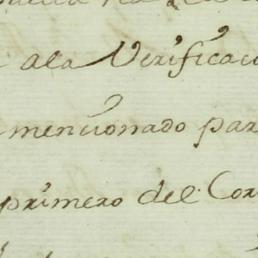 ala Verificac
mencionado par
primero del Cor